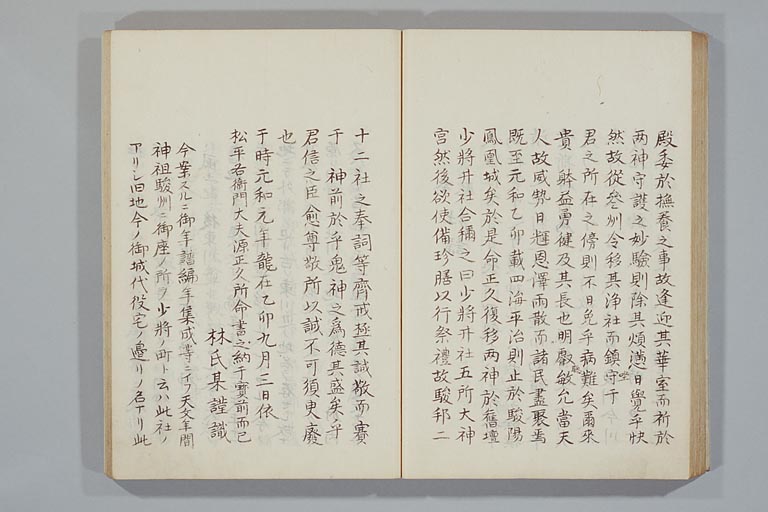 殿委於撫養之事故逢迎其華室而祈於
両神守護之妙驗則除其煩懣日覺乎快
然故從參州令移其浄社而鎮守于
君之所在之傍則不日免乎病難矣爾來
貴躰益勇健及其長也明叡敏允當天
人故威勢日軽恩澤雨散而諸民盡聚焉
既至元和乙卯載四海平治則止於駿陽
鳳凰城矣於是命正久復移両神於舊壇
少將井社合稱之曰少將井社五所大神
宮然後欲使備珍膳以行祭禮故駿邦二
十二社之奉詞等齊戒極其誠敬而賽
于 神前於乎鬼神之為德其盛矣乎
君信之臣愈尊敬所以誠不可須臾廢
也
于時元和元年龍在乙卯九月三日依
松平右衛門大夫源正久所命書之納于寳前而已
林氏某謹識
今案スルニ御年譜編年集成等ニイフ天文年間
神祖駿州ニ御座ノ所ヲ少將ノ町ト云ハ此社ノ
アリシ旧地今ノ御城代役宅ノ邉リノ名ナリ此